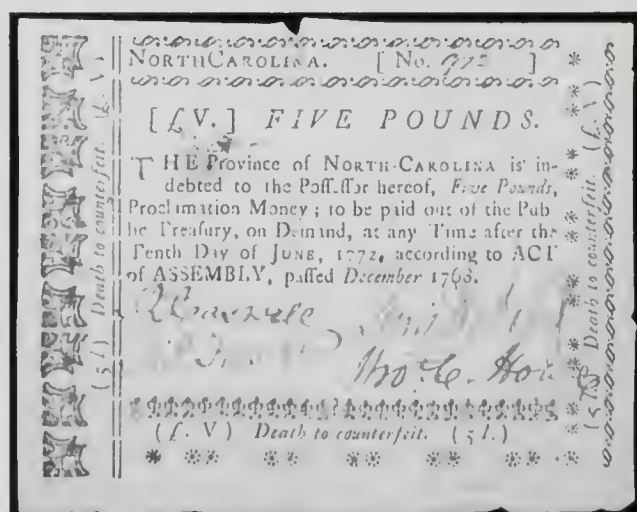 NORTH CAROLINA. [ No. ]
[ £ V. ] FIVE POUNDS.
THE Province of NORTH-CAROLINA is in-
debted to the Poſſeſſor hereof, Five Pounds,
Proclamation Money; to be paid out of the Pub
lic Treaſury, on Demand, at any Time after the
Tenth Day of JUNE, 1772, according to ACT
of ASSEMBLY, paſſed December 1768.
(£. V) Death to counterfeit. (5 l.)
(5 l.) Death to counterfeit. (£. V)
(5 l.) Death to counterfeit. (£. V)